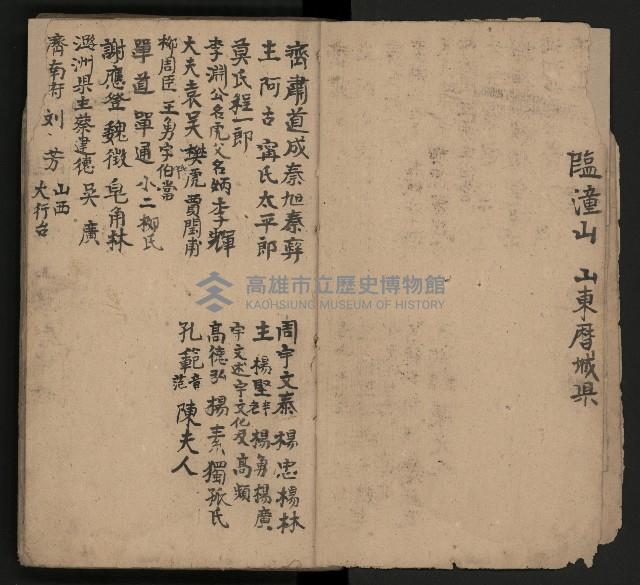 臨潼山 山東曆城県
齊肅道成秦旭秦彝
主阿古甯氏太平郎
莫氏程一郎
李淵公名虎父名炳李輝
大夫袁吴樊虎賈閏甫
柳周臣王勇字伯當
單道單通小二柳氏
謝應登魏徵皂角林
潞洲県主蔡建德吳廣
濟南府刘芳山西大行台
周宇文泰楊忠楊林
主楊堅楊勇楊廣
宇文述宇文化及高頻
高德弘楊素獨孤氏
孔範音范陳夫人
高雄市立歷史博物館
KAOHSIUNG MUSEUM OF HISTORY